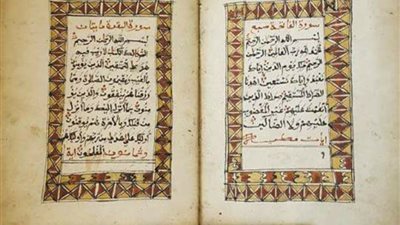 سورة الفاتحة سبع
بسم الله الرحمن الرحيم
الحمد لله رب العالمين الرحمن
الرحيم ملك يوم الدين إياك
نعبد وإياك نستعين اهدنا
الصراط المستقيم صراط الذين
أنعمت عليهم غير المغضوب
عليهم ولا الضالين
آيات
سورة البقرة مايتان
بسم الله الرحمن الرحيم
الم ذلك الكتب لا ريب فيه
هدى للمتقين الذين يومنو
ن بالغيب ويقيمون الصلوة ومما
رزقنهم ينفقون والذين يو
منون بما أنزل إليك وما أنزل
من قبلك وبالاخرة هم يوقنون
أولئك على هدى من ربهم وأولئك
هم المفلحون